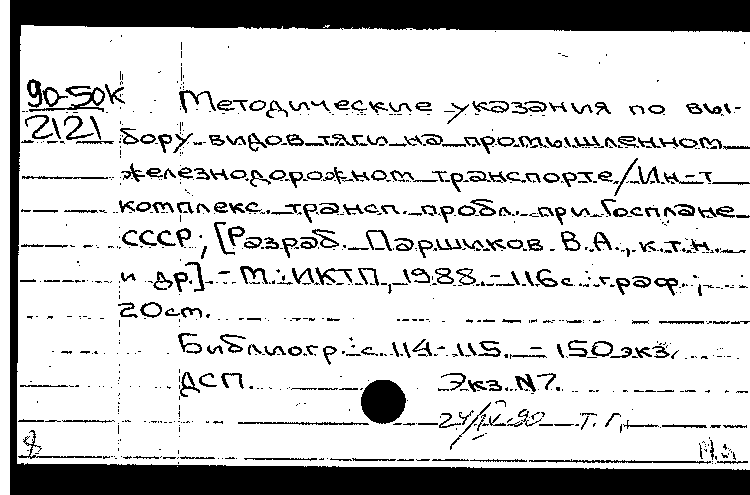 90-50к Методические указания по вы-
2121 бору видов тяги на промышленном
железнодорожном транспорте/Ин-т
комплекс. трансп. пробл. при Госплане
СССР; [Разраб. Паршиков В.А., к.т.н.
и др.]. - М.: ИКТП, 1988. - 116 с. : граф. ;
20 ст.
Библиогр.: с. 114-115. - 150 экз.
ДСП. Экз. N7.
24/IV-90 Т. Г.
8